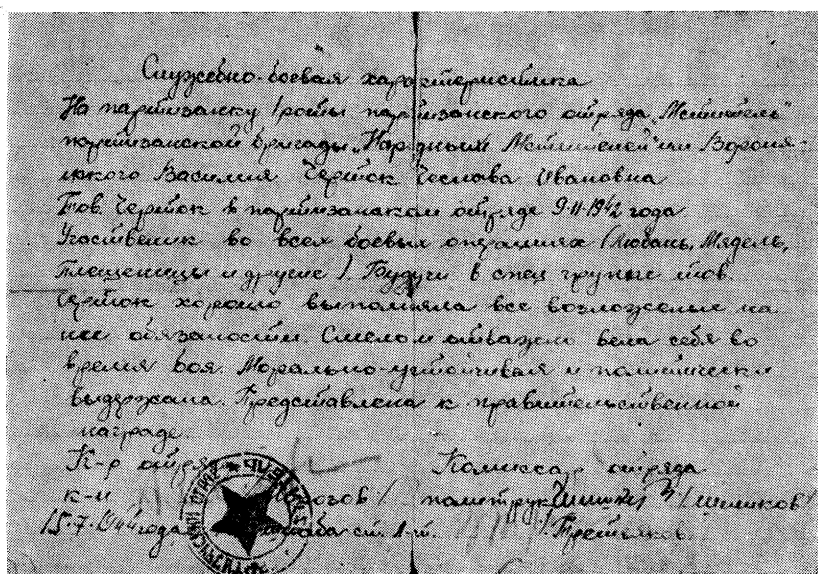 Служебно-боевая характеристика
На партизанку роты партизанского отряда „Мститель"
партизанской бригады „Народный Мститель" им Вороня-
нского Василия Черток Ивановна
Тов. Черток в партизанском отряде 9-II-1942 года
во всех боевых операциях (Любань, Мядель,
Плещеницы и другие). Будучи в спец группе тов.
Черток хорошо выполняла все возложеные на
нее обязаности. Смело и отважно вела себя во
время боя. Морально-устойчивая и политически
выдержана. Представлена к правительственной
награде.
К-р Комиссар отряда
к-н политрук /Шишков/
15-7-1944 года штаба ст. л-т. /Третьяков